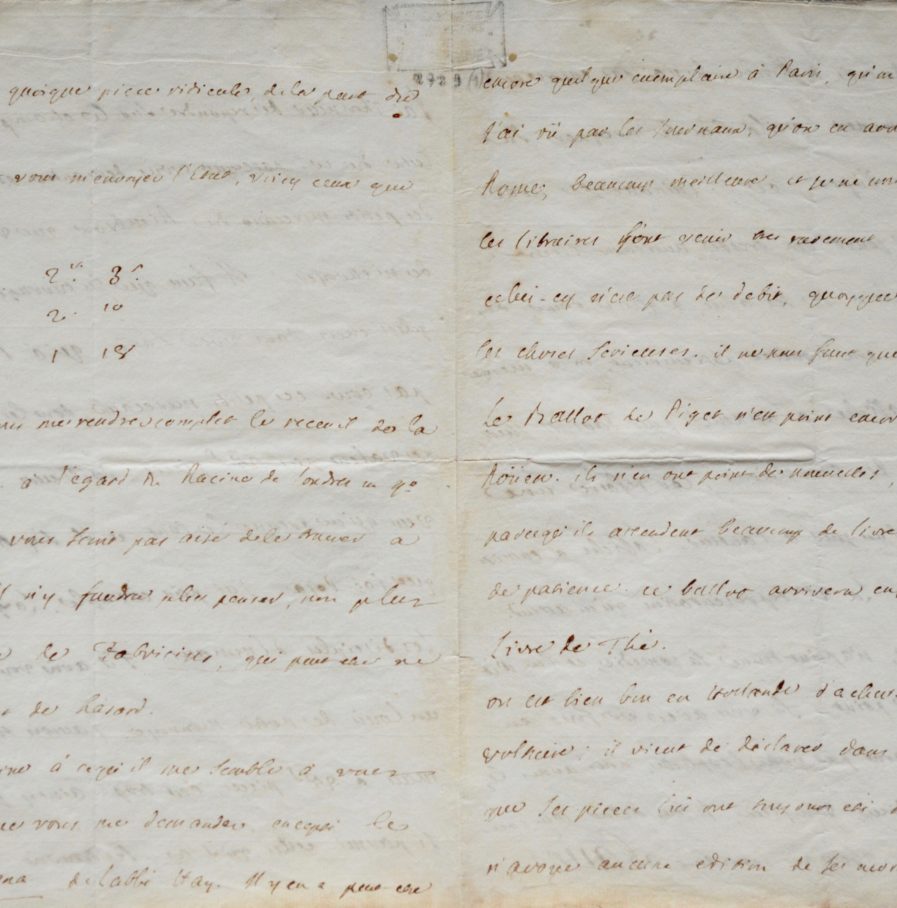 quoique piece ridicules de la part des
vous m'envoyez l'Etat, voicy ceux que
2. 3.
2. 10
1 18
me rendre complet le recueil de la
à l'egard du Racine de Londres in 4°
vous sera pas aisé de le trouver à
il n'y faudra plus penser, non plus
de Fabricius, qui peut etre ne
de hasard.
à ce qu'il me semble à vous
vous me demandez, excepté le
de l'abbé Hay. Il y en a peut etre
encore quelque exemplaire à Paris, qu'on
J'ai vû par les Journaux, qu'on en avoit
Rome, beaucoup meilleure, et je ne
les libraires font venir que rarement
celui-cy n'est pas de debit, quoyque
les choses serieuses. il ne nous faut que
Le Ballot de Piget n'est point encore
Roüen. ils n'en ont point de nouvelles,
parcequ'ils attendent beaucoup de livres
de patience. ce ballot arrivera
livre de Thé.
on est bien bon en Hollande d'achet
voltaire; il vient de declarer dans
que ses pieces lui ont toujours été
n'avoue aucune edition de ses